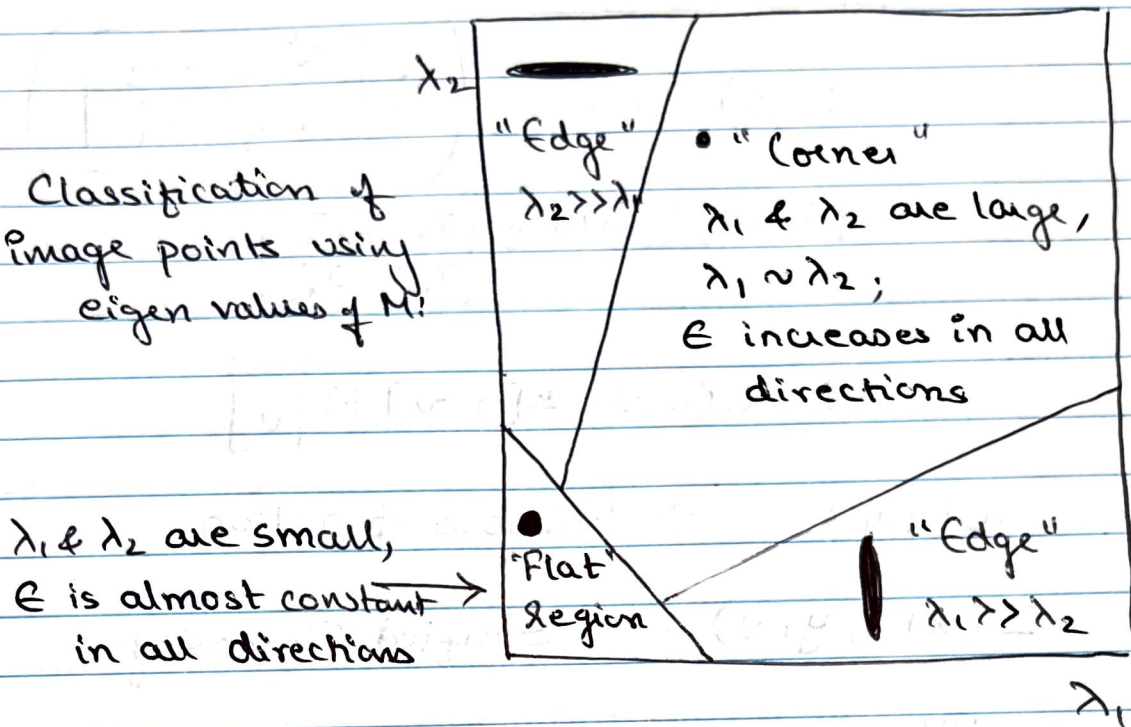 λ2
"Edge"
λ2>>λ1
• "Corner"
λ1 & λ2 are large,
λ1 ~ λ2;
E increases in all
directions
Classification of
image points using
eigen values of M:
λ1 & λ2 are small,
E is almost constant →
in all directions
"Flat"
Region
"Edge"
λ1>>λ2
λ1